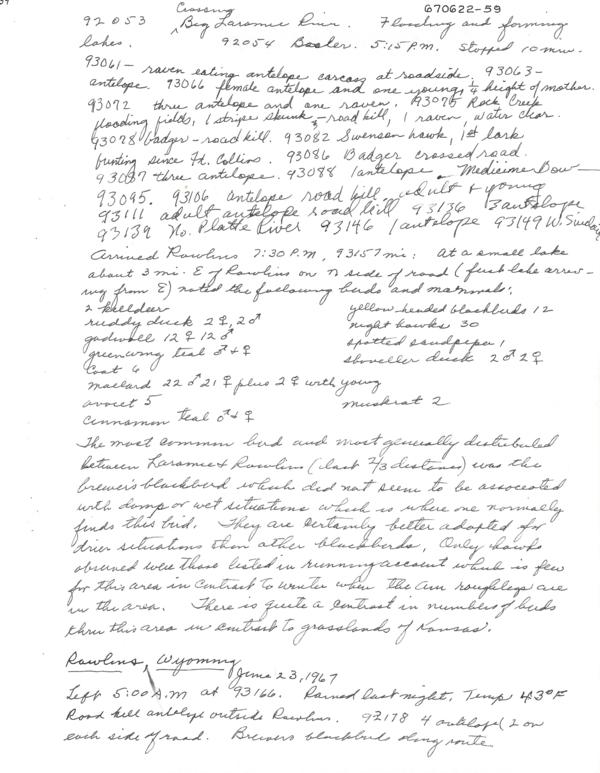 Crossing 670622-59
92053 Big Laramie River. Flooding and forming
lakes. 92054 Bosler. 5:15 P.M. Stopped 10 min.
93061 - raven eating antelope carcass at roadside. 93063 -
antelope. 93066 female antelope and one young, 1/4 height of mother.
93072 three antelope and one raven. 93075 Rock Creek
flooding fields, 1 stripe skunk - road kill, 1 raven, water clear.
93078 badger - road kill. 93082 Swenson hawk, 1st lark
bunting since Ft. Collins. 93086 Badger crossed road.
93087 three antelope. 93088 1 antelope - Medicine Bow -
93095. 93106 antelope road kill adult + young
93111 adult antelope road kill 93136 3 antelope
93139 No. Platte River 93146 1 antelope 93149 W. Sinclair
Arrived Rawlins 7:30 P.M., 93157 mi: At a small lake
about 3 mi. E of Rawlins on N side of road (first lake
from E) noted the following birds and mammals:
2 killdeer yellow headed blackbirds 12
ruddy duck 2♀, 2♂ night hawks 30
gadwall 12♀ 12♂ spotted sandpiper 1
greenwing teal ♂+♀ shoveller duck 2♂ 2♀
Coot 6
mallard 22♂ 21♀ plus 2♀ with young
avocet 5 muskrat 2
Cinnamon teal ♂+♀
The most common bird and most generally distributed
between Laramie + Rawlins (last 2/3 distance) was the
brewer's blackbird which did not seem to be associated
with damp or wet situations which is where one normally
finds this bird. They are certainly better adapted for
drier situations than other blackbirds. Only hawks
observed were those listed in running account which is few
for this area in contrast to winter when the Am roughlegs are
in the area. There is quite a contrast in numbers of birds
thru this area in contrast to grasslands of Kansas.
Rawlins, Wyoming
June 23, 1967
Left 5:00 A.M at 93166. Rained last night, Temp 43°F
Road kill antelope outside Rawlins. 92178 4 antelope (2 on
each side of road. Brewers blackbird along route.